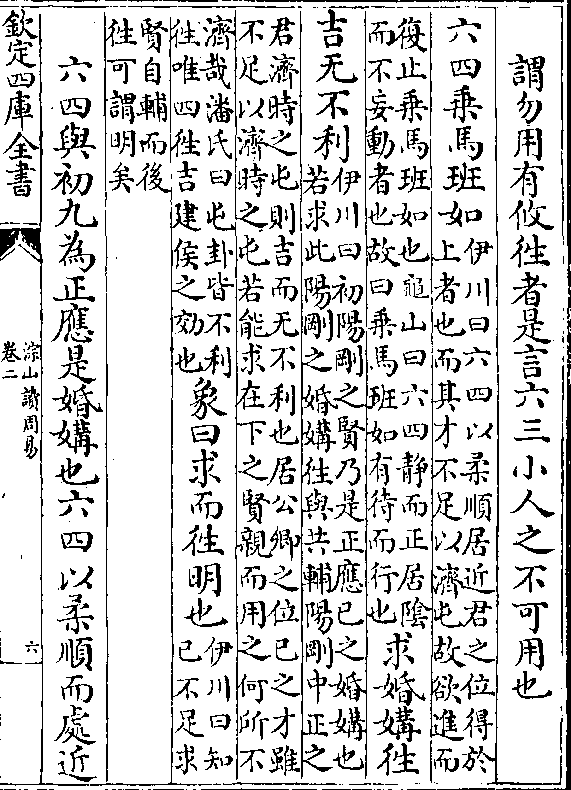 謂勿用有攸徃者是言六三小人之不可用也
六四乗馬班如伊川曰六四以柔順居近君之位得於
上者也而其才不足以濟屯故欲進而
復止乗馬班如也龜山曰六四静而正居隂
而不妄動者也故曰乗馬班如有待而行也求婚媾徃
吉无不利伊川曰初陽剛之賢乃是正應已之婚媾也
若求此陽剛之婚媾徃與共輔陽剛中正之
君濟時之屯則吉而无不利也居公卿之位已之才雖
不足以濟時之屯若能求在下之賢親而用之何所不
濟哉潘氏曰屯卦皆不利
徃唯四徃吉建侯之効也象曰求而徃明也伊川曰知
已不足求
賢自輔而後
徃可謂明矣
六四與初九為正應是婚媾也六四以柔順而處近
欽定四庫全書
淙山讀周易
卷二
六